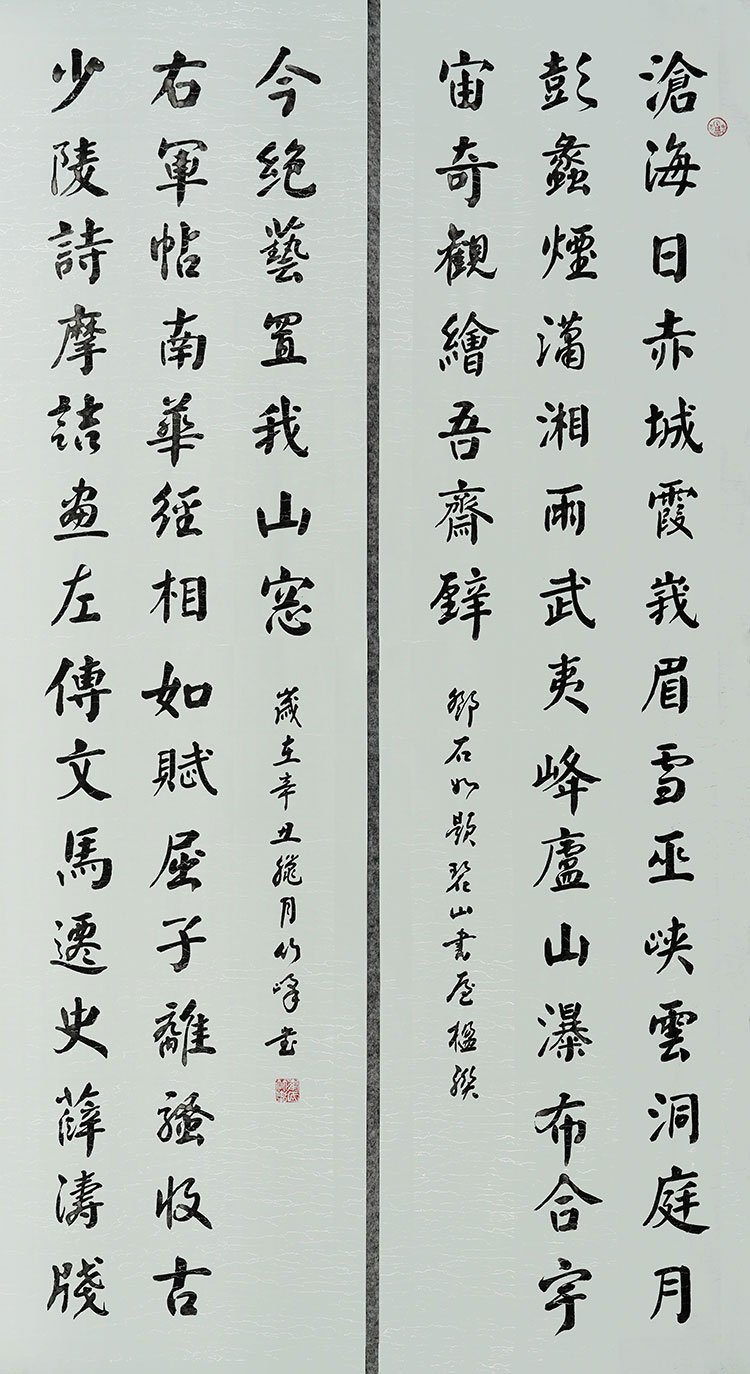 滄海日赤城霞峩眉雪巫峽雲洞庭月
彭蠡煙瀟湘雨武夷峰廬山瀑布合宇
宙奇觀繪吾齋壁
鄧石如題碧山書屋楹聯
少陵詩摩詰畫左傳文馬遷史薛濤牋
右軍帖南華經相如賦屈子離騷收古
今絕藝置我山窓
歲在辛丑臘月竹峰書